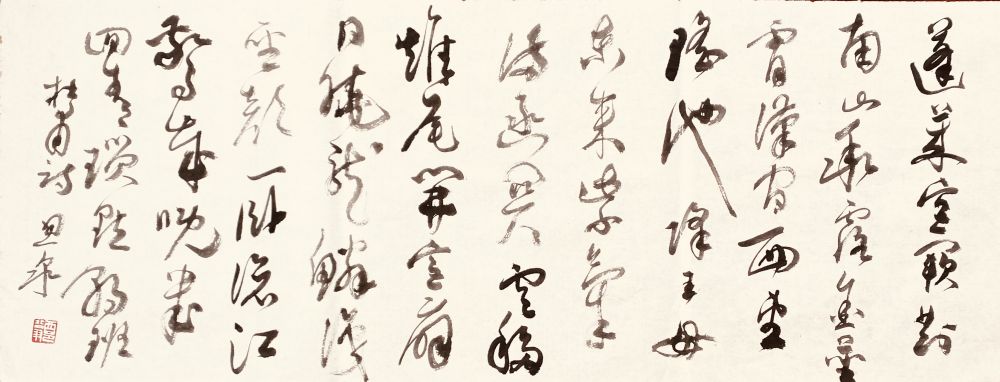 蓬萊宮闕對
南山承露金莖
霄漢間西望
瑤池降王母
東来紫氣
滿函関雲移
雉尾開宮扇
日繞龍鱗識
聖顏一臥滄江
驚歲晚幾
回青瑣點朝班
杜甫詩